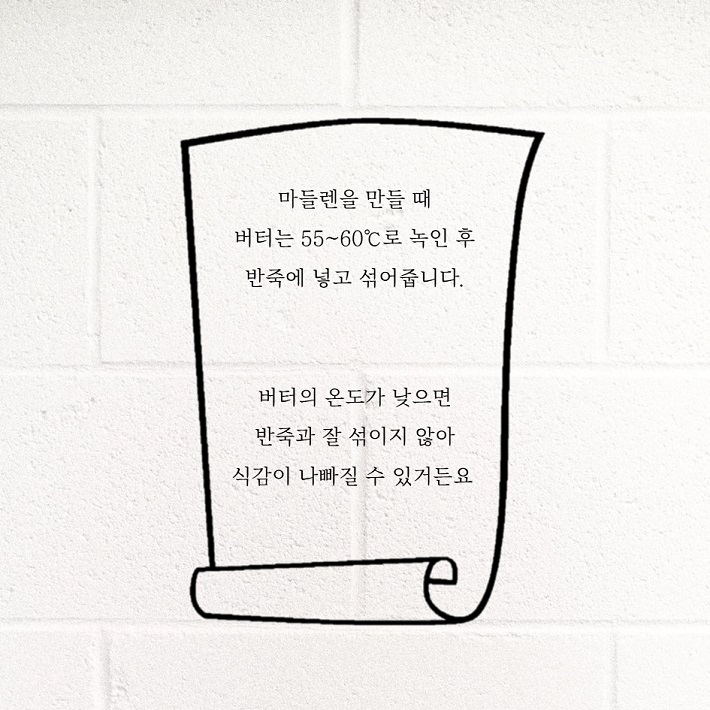 마들렌을 만들 때
버터는 55~60℃로 녹인 후
반죽에 넣고 섞어줍니다.
버터의 온도가 낮으면
반죽과 잘 섞이지 않아
식감이 나빠질 수 있거든요